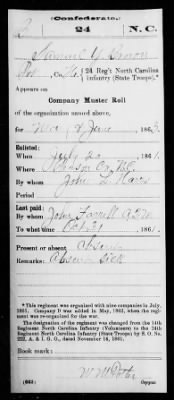 (Confederate.)
24 N.C.
Samuel Y. Brown
Pvt, Co. 
24 Reg't North Carolina Infantry (State Troops).*
Appears on
Company Muster Roll
of the organization named above,
for May & June, 1863.
Enlisted:
When July 20, 1861.
Where Person Co. N.C.
By whom John L. Harris
Period
Last paid:
By whom John Farrell A.Q.M.
To what time Oct 31, 1861.
Present or absent Absent
Remarks: Absent sick
*This regiment was organized with nine companies in July, 1861. Company D was added in May, 1862, when the regiment was re-organized for the war.
The designation of the regiment was changed from the 14th Regiment North Carolina Infantry (Volunteers) to the 24th Regiment North Carolina Infantry (State Troops) by S. O. No. 222, A. & I. G. O., dated November 14, 1861.
Book mark:
(642)
Copyist.